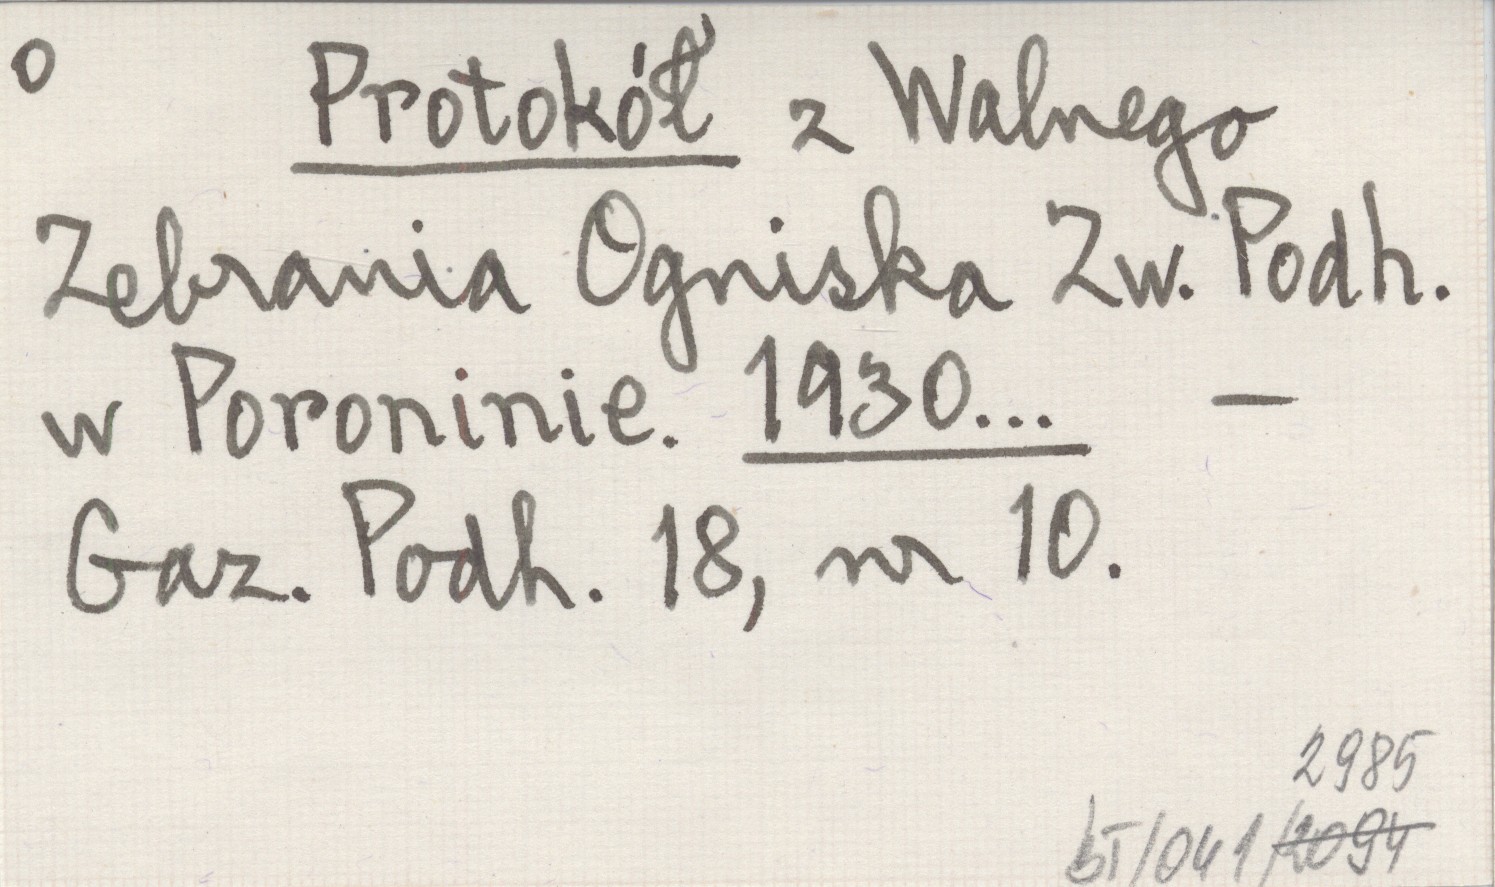 o Protokół z Walnego
Zebrania Ogniska Zw. Podh.
w Poroninie. 1930... —
Gaz. Podh. 18, nr 10.
2985
bT/041/2094